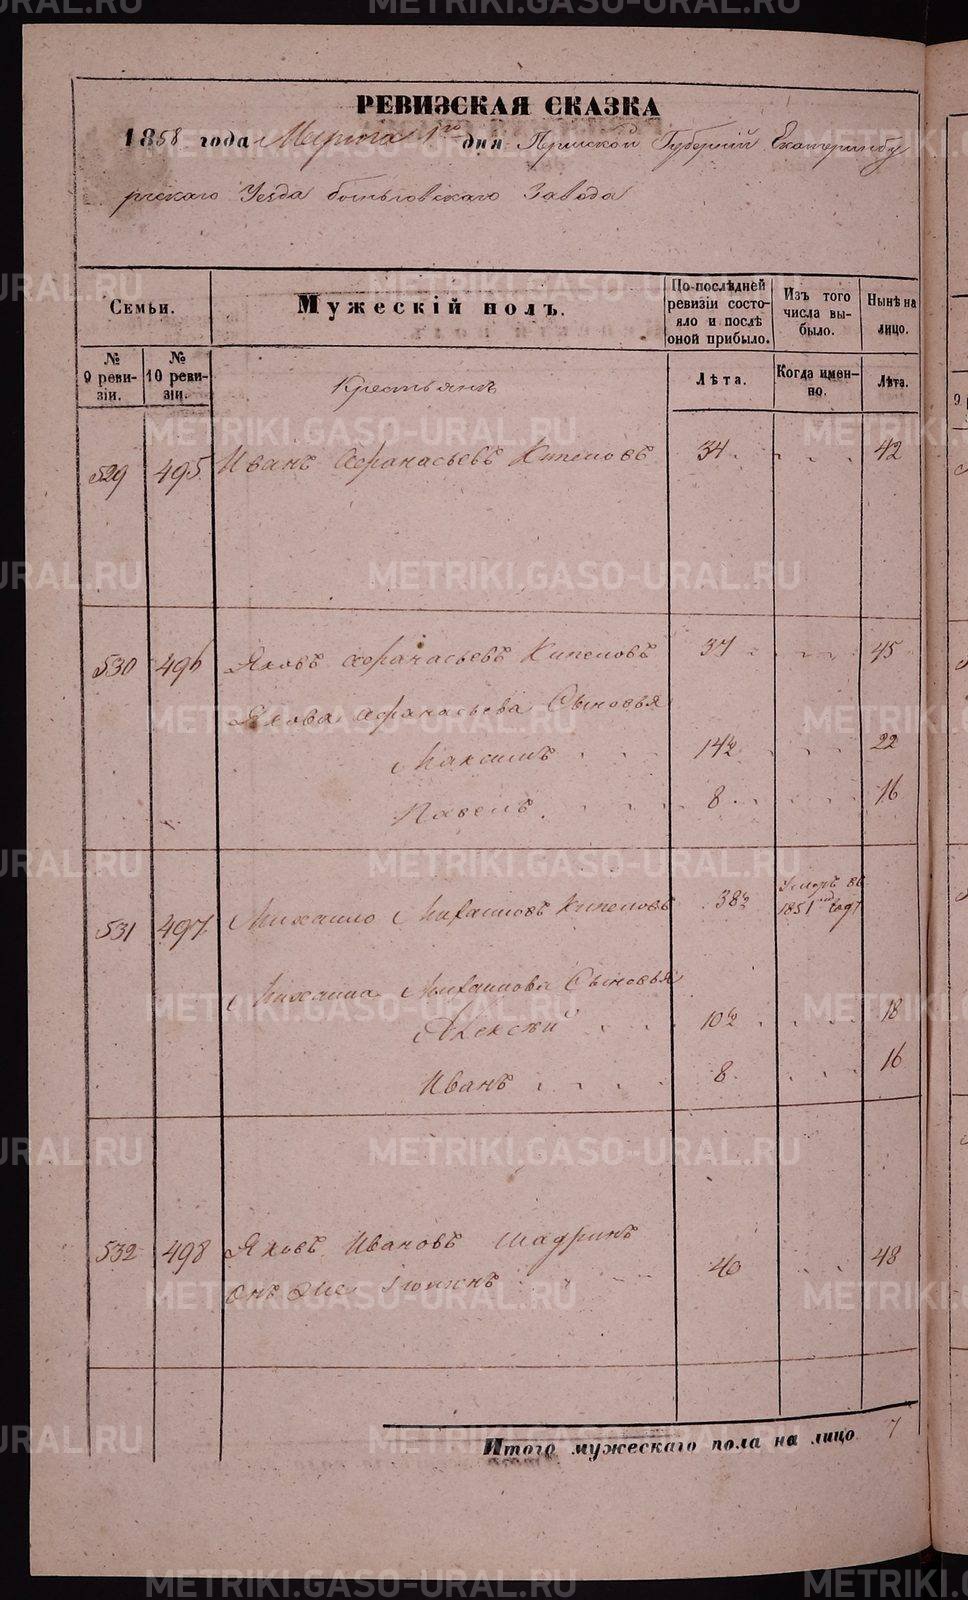 РЕВИЗСКАЯ СКАЗКА
1858 года Марта 1го дня Пермской Губернiй Екатеринбу
ргскаго Уезда быньговскаго Завода
Семьи.
Мужескій полъ.
По послѣдней ревизіи состояло и послѣ оной прибыло.
Изъ того числа выбыло.
Нынѣ на лицо.
№ 9 ревизіи.
№ 10 ревизіи.
Крестьянъ
Лѣта.
Когда именно.
Лѣта.
529 495 Иванъ Афанасьевъ Кипеловъ 34 42
530 496 Яковъ Афанасьевъ Кипеловъ 37 45
Якова Афанасьева Сыновья
Максимъ 14½ 22
Павелъ 8 16
531 497 Михаило Михаиловъ Кипеловъ 38½ Умеръ въ 1851 году
Михаила Михаилова Сыновья
Алексѣй 10½ 18
Иванъ 8 16
532 498 Яковъ Ивановъ Шадринъ
Онъ же 40 48
Итого мужескаго пола на лицо 7
METRIKI.GASO-URAL.RU